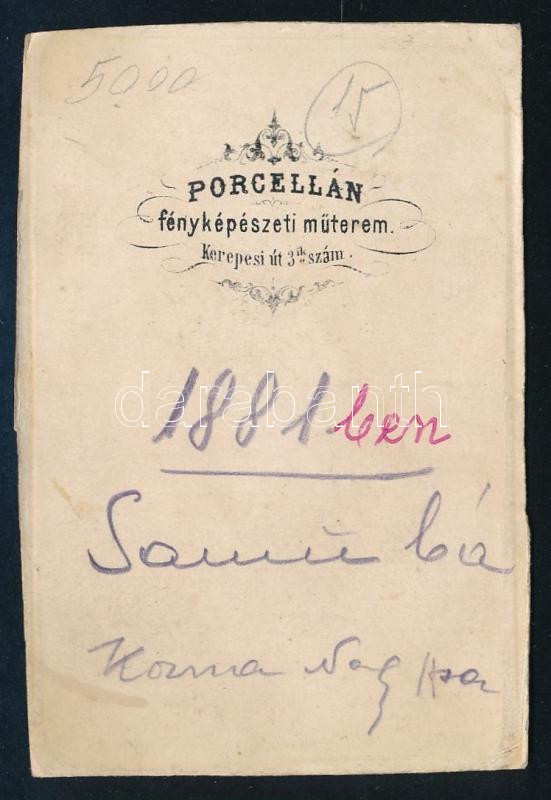 5000
15
PORCELLÁN
fényképészeti műterem.
Kerepesi út 3ik szám.
darabanth
1881 ben
Samu bá
Kozma Nagy